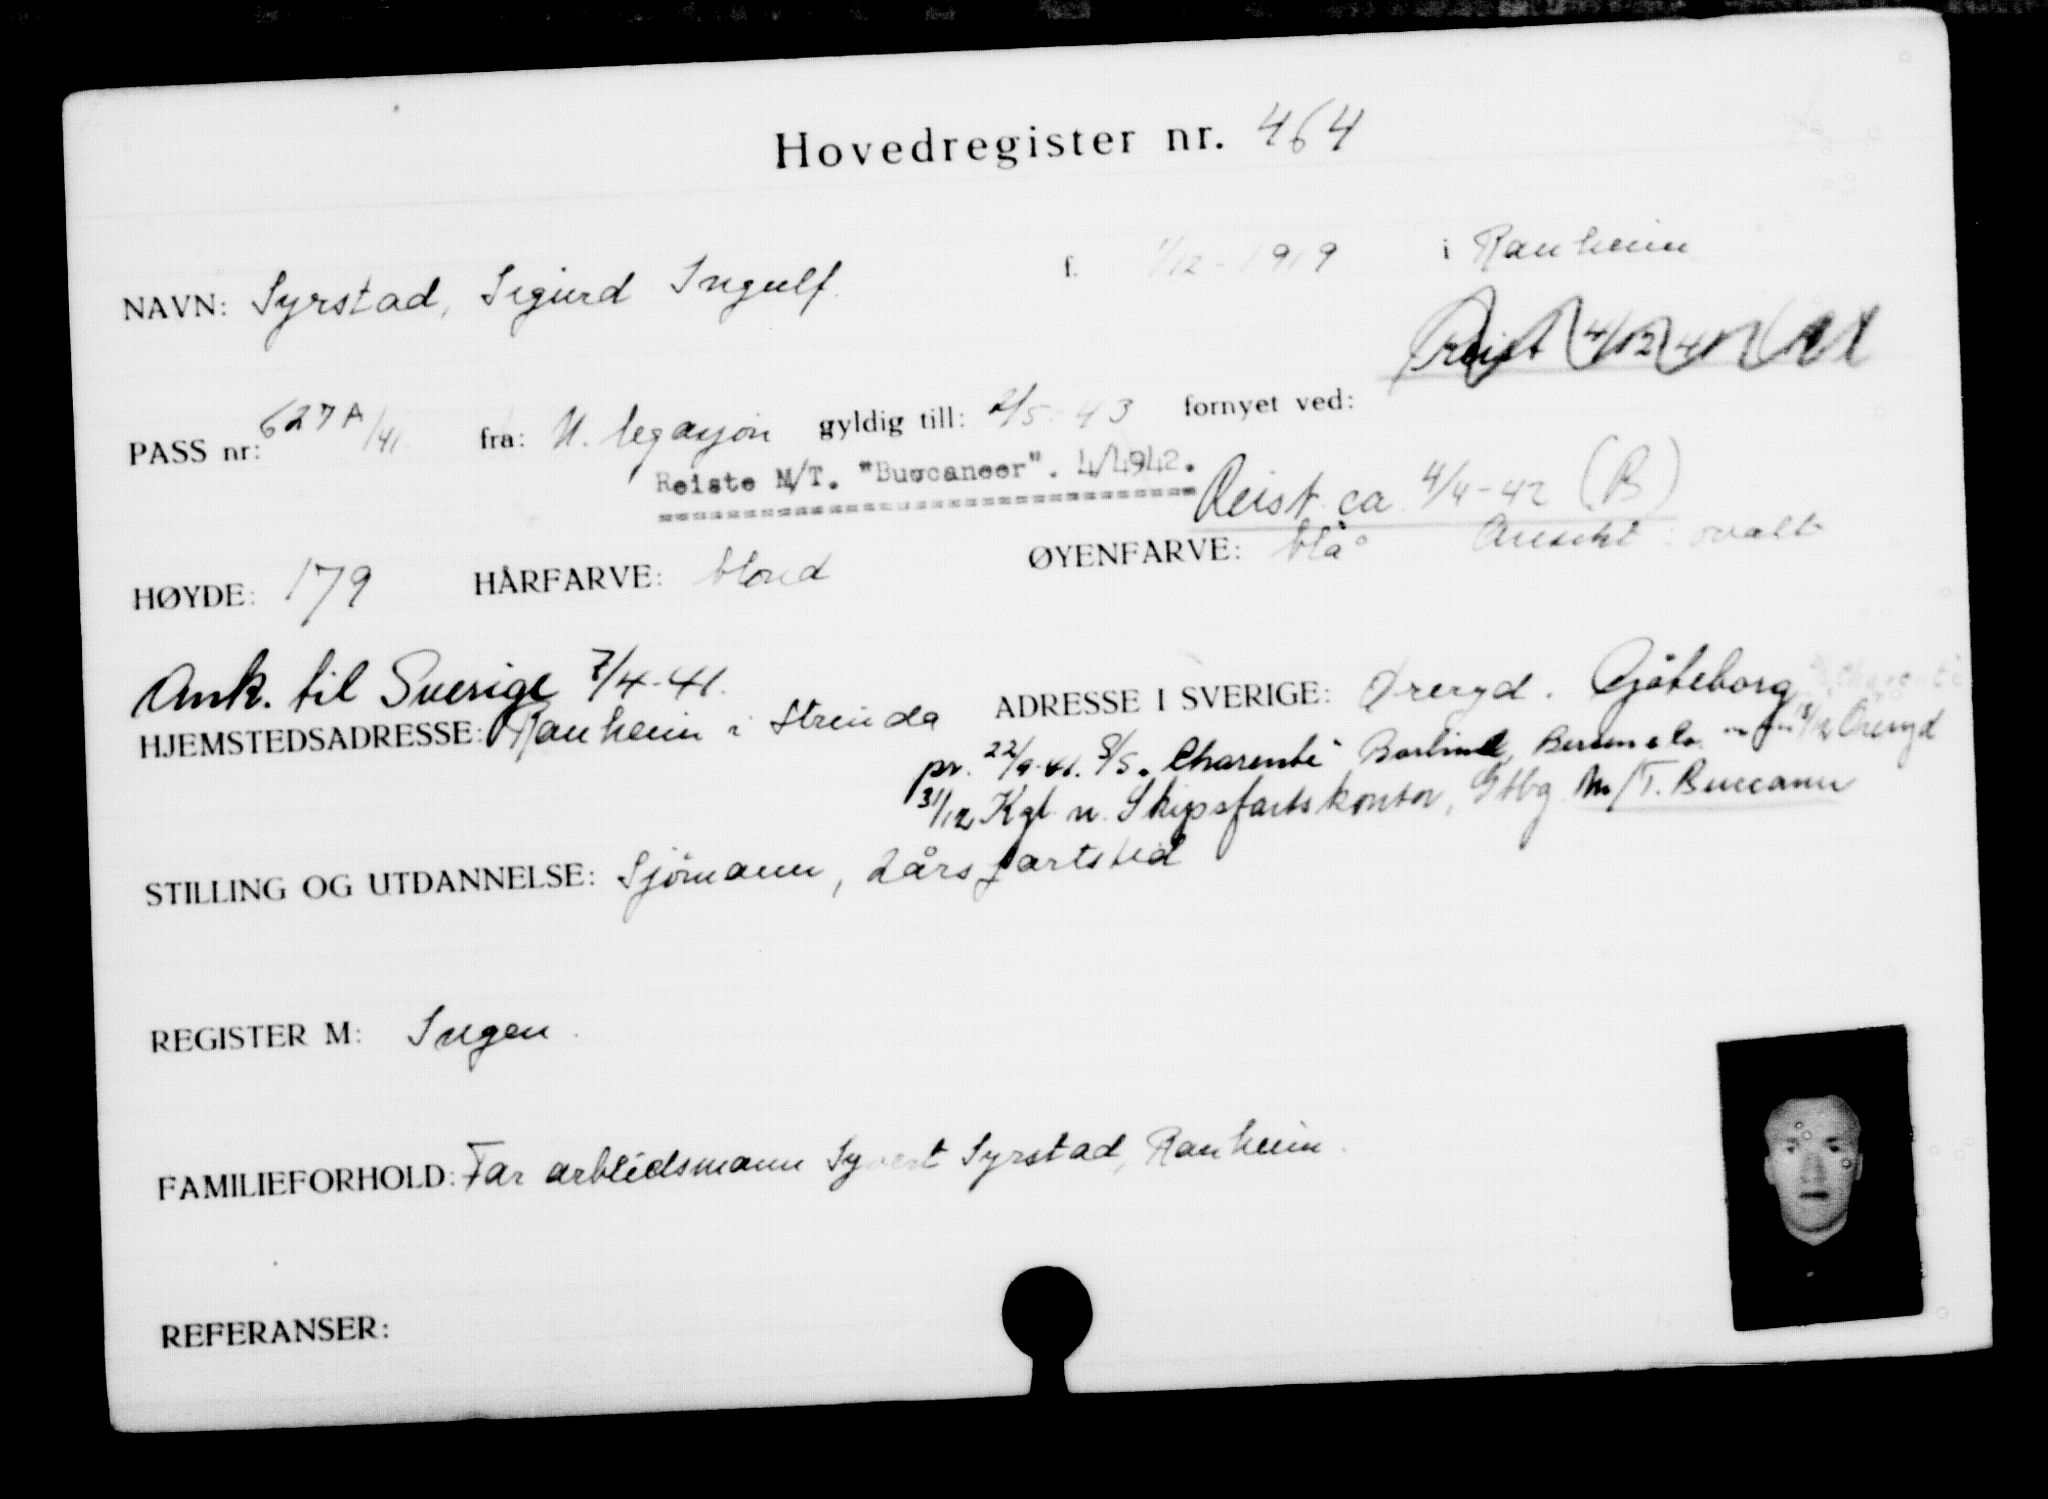 Hovedregister nr. 464
NAVN: Syrstad, Sigurd Ingulf. f. 1/12-1919 i Ranheim
Reist 4/12 41
PASS nr: 627A/41. fra: N. legasjon gyldig till: 2/5-43 fornyet ved:
Reiste M/T. "Buccaneer". 4/4942.
Reist ca 4/4-42 (B)
HØYDE: 179 HÅRFARVE: blond ØYENFARVE: blå Ansikt: ovalt
Ank. til Sverige 7/4-41.
HJEMSTEDSADRESSE: Ranheim i Strinda ADRESSE I SVERIGE: Øreryd. Gjøteborg
pr. 22/9-41. S/S. Charente 18/12 Øreryd
31/12 Kgl. n. Skipsfartskontor, Gtbg M/T. Buccaneer
STILLING OG UTDANNELSE: Sjömann, 2 års fartstid
REGISTER M: Ingen.
FAMILIEFORHOLD: Far arbeidsmann Syvert Syrstad, Ranheim.
REFERANSER: